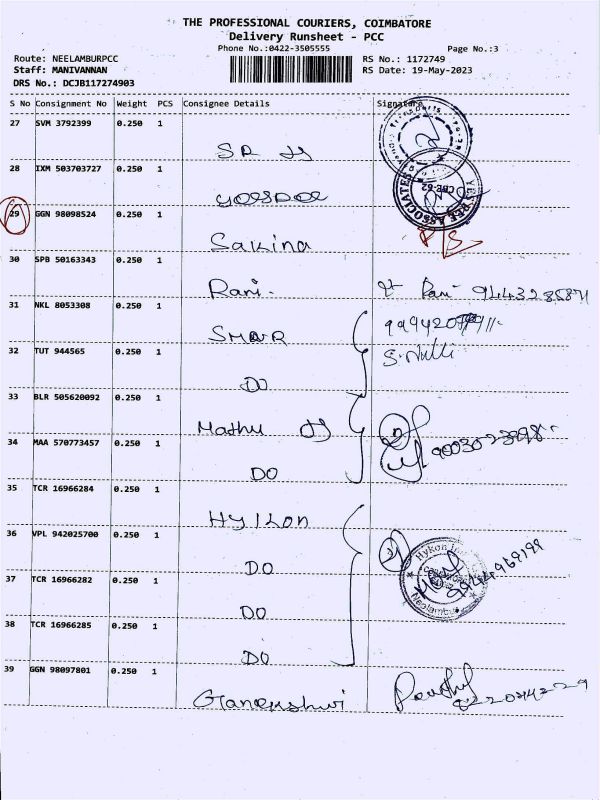 THE PROFESSIONAL COURIERS, COIMBATORE
Delivery Runsheet - PCC
Phone No.:0422-3505555
Page No.:3
Route: NEELAMBURPCC
RS No.: 1172749
Staff: MANIVANNAN
RS Date: 19-May-2023
DRS No.: DCJB117274903
S No Consignment No Weight PCS Consignee Details Signature
27 SVM 3792399 0.250 1
28 IXM 503703727 0.250 1
29 GGN 98098524 0.250 1
YES BEE ASSOCIATES CBE-62
Sakina
30 SPB 50163343 0.250 1
Rani.
31 NKL 8053308 0.250 1
32 TUT 944565 0.250 1
DO
33 BLR 505620092 0.250 1
Mathu
34 MAA 570773457 0.250 1
DO
35 TCR 16966284 0.250 1
Hyikon
36 VPL 942025700 0.250 1
DO
37 TCR 16966282 0.250 1
DO
38 TCR 16966285 0.250 1
DO
39 GGN 98097801 0.250 1